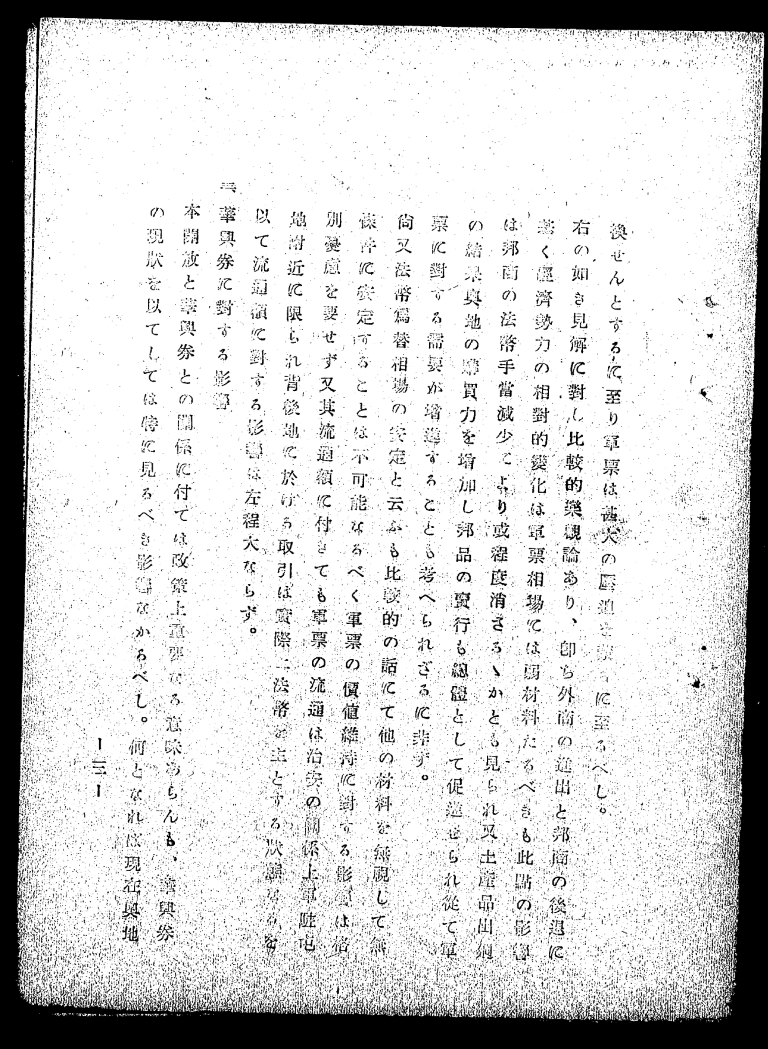 換せんとするに至り軍票は甚大の壓迫を蒙るに至るべし。
右の如き見解に對し比較的樂觀論あり、卽ち外商の進出と邦商の後退に
基く經濟勢力の相對的變化は軍票相場には弱材料たるべきも此點の影響
は邦商の法幣手當減少により或程度消さるゝかとも見られ又土產品出廻
の結果奧地の購買力を增加し邦品の賣行も總體として促進せられ從て軍
票に對する需要が增進することも考へられざるに非ず。
尙又法幣爲替相場の安定と云ふも比較的の話にて他の材料を無視して無
條件に安定することは不可能なるべく軍票の價値維持に對する影響は格
別憂慮を要せず又其流通額に付きても軍票の流通は治安の關係上軍駐屯
地附近に限られ背後地に於ける取引は實際上法幣を主とする狀態なるを
以て流通額に對する影響は左程大ならず。
二 華興券に對する影響
本開放と華興券との關係に付ては政策上重要なる意味あらんも、華興券
の現狀を以てしては特に見るべき影響なかるべし。何となれば現在奧地
―三―